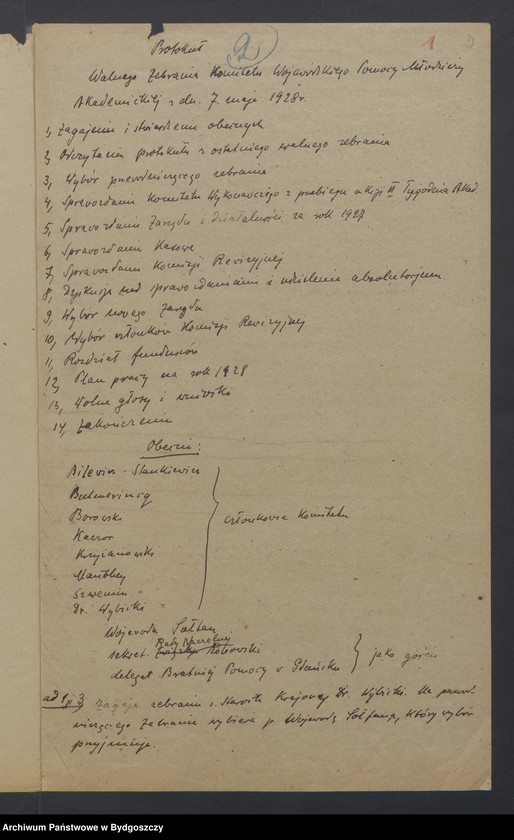 Protokół 2 1 2
Walnego Zebrania Komitetu Wojewódzkiego Pomocy Młodzieży
Akademickiej z dn. 7. maja 1928 r.
1, Zagajenie i stwierdzenie obecnych
2, Odczytanie protokułu z ostatniego walnego zebrania
3, Wybór przewodniczącego zebrania
4, Sprawozdanie Komitetu Wykonawczego z przebiegu akcji II Tygodnia Akad
5, Sprawozdanie Zarządu z działalności za rok 1927
6, Sprawozdanie Kasowe
7, Sprawozdanie Komisji Rewizyjnej
8, Dyskusja nad sprawozdaniami i udzielenie absolutorjum
9, Wybór nowego Zarządu
10, Wybór członków Komisji Rewizyjnej
11, Rozdział funduszów
12, Plan pracy na rok 1928
13, Wolne głosy i wnioski
14, Zakończenie
Obecni:
Bilewicz-Stankiewicz
Borowski
Kaczor
Krzyżanowski
Manthey
Szwemin
Dr. Wybicki
członkowie Komitetu
Wojewoda Sołtan
Rady Naczelnej
sekret.
delegat Bratniej Pomocy w Gdańsku
jako goście
ad 1 i 3, Zagaja zebranie p. Starosta Krajowy Dr. Wybicki. Na przewod-
niczącego Zebranie wybiera p. Wojewodę Sołtana, który wybór
przyjmuje.
Archiwum Państwowe w Bydgoszczy